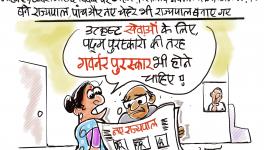 की राज्यपाल पांच और नए चेहरे भी राज्यपाल बनाए गए
उत्कृष्ट सेवाओं के लिए
पद्म पुरस्कारों की तरह
गवर्नर पुरस्कार भी होने
चाहिए !!
नए राज्यपाल